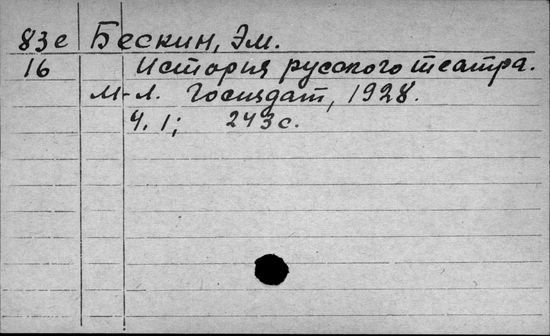 83е Бескин, Эм.
16 История русского театра.
М-Л. Госиздат, 1928.
Ч. 1; 243 с.